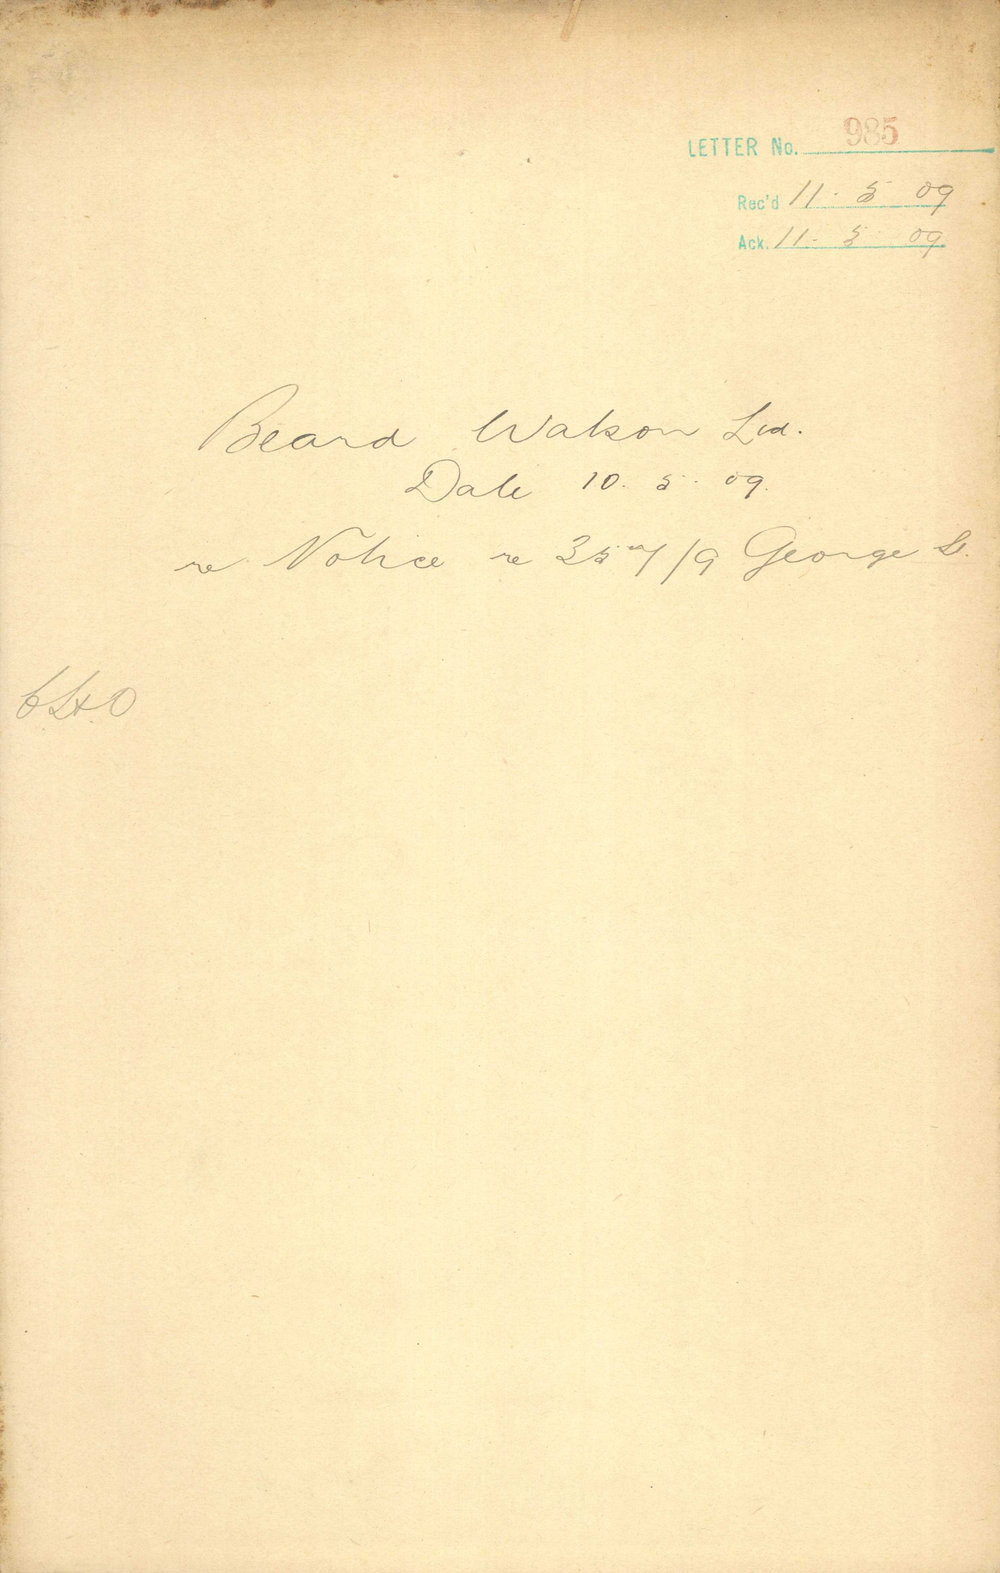 LETTER No. 985
Rec'd 11. 5 09
Ack. 11. 5 09
Beard Watson Ltd.
Date 10. 5. 09.
re Notice re 357/9 George St.